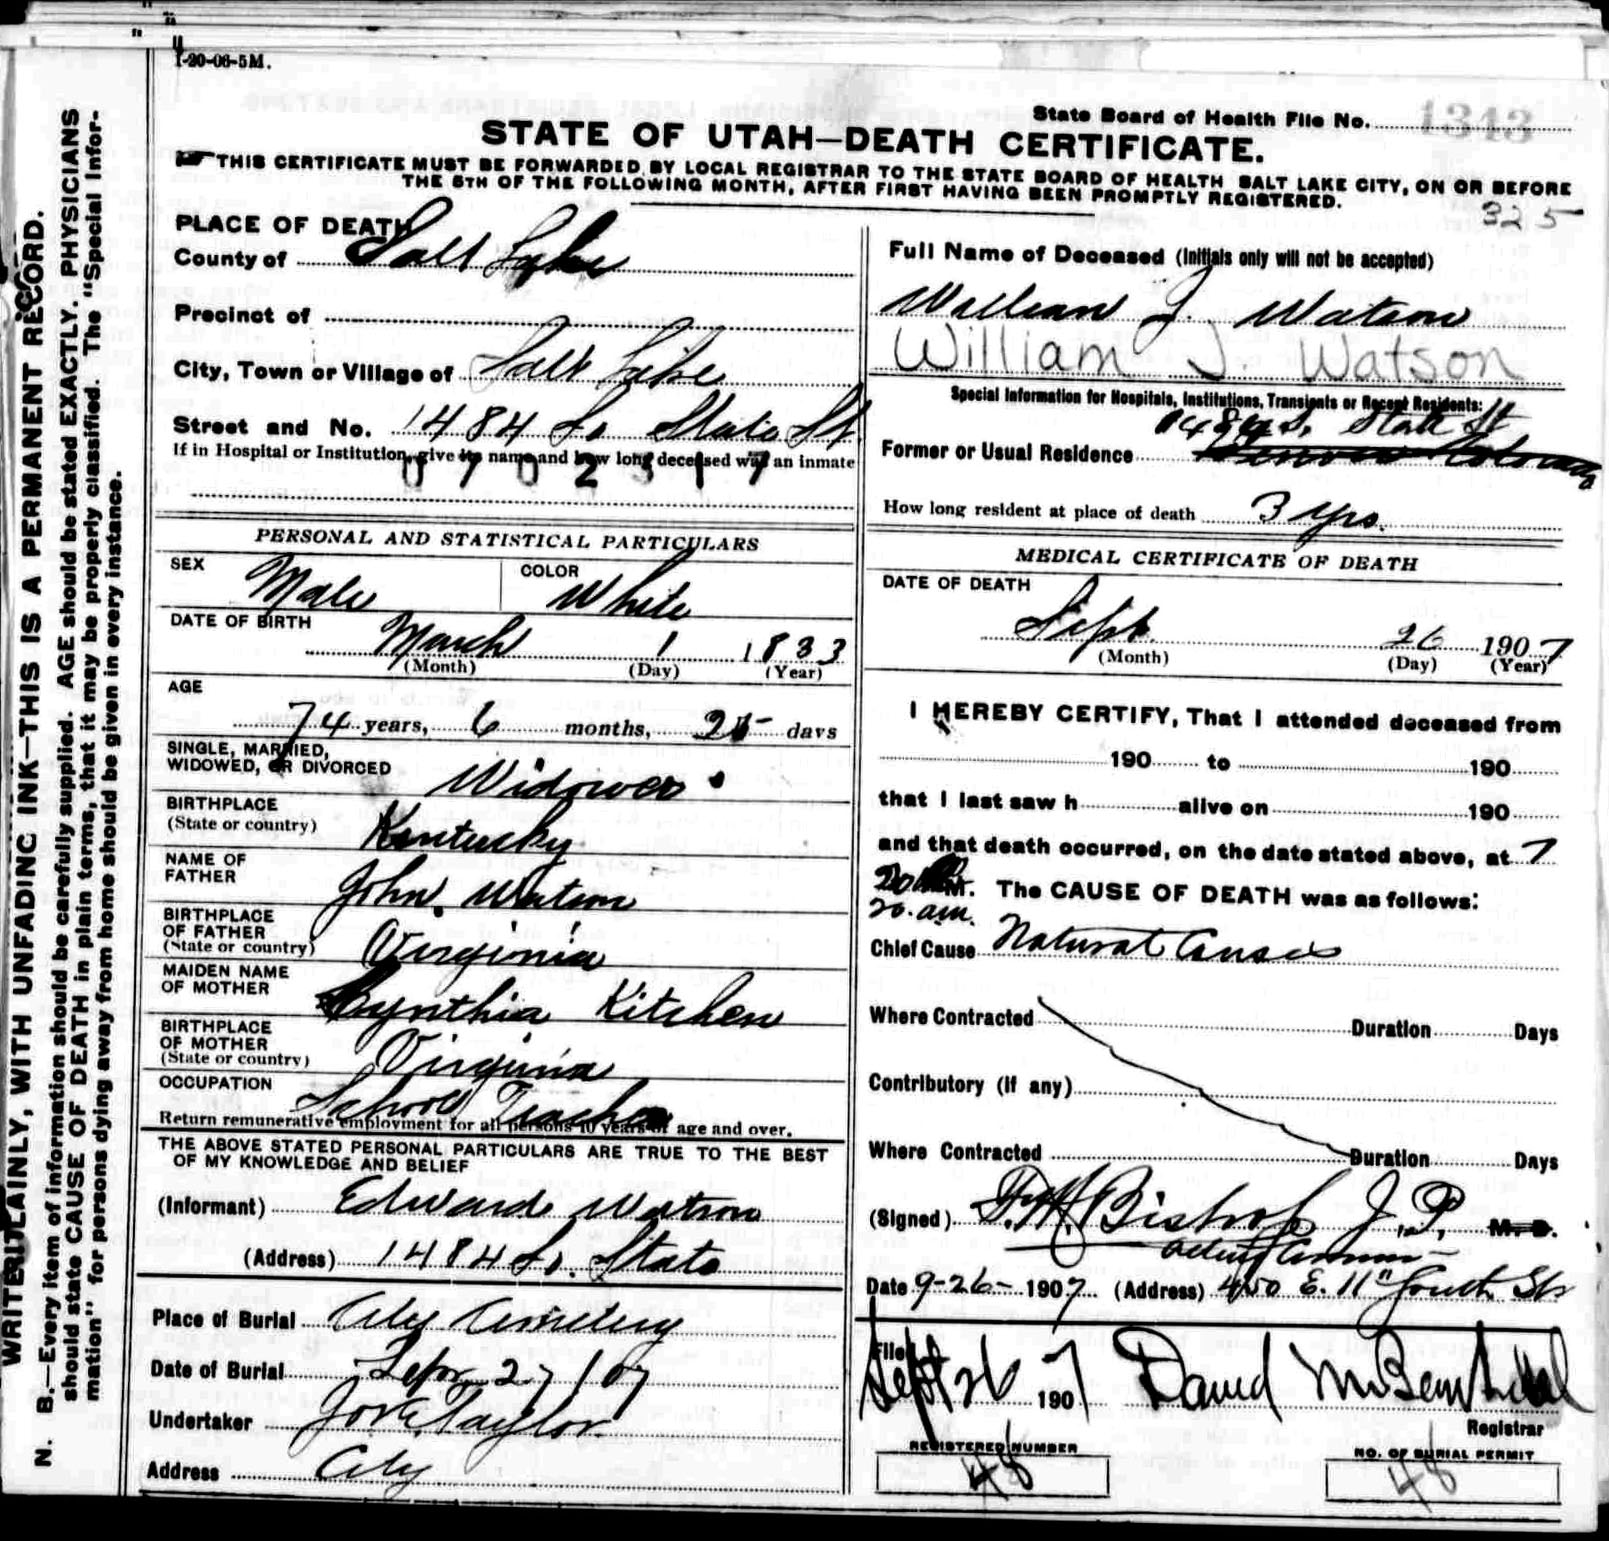 1-20-06-5M.
State Board of Health File No. 1343
STATE OF UTAH—DEATH CERTIFICATE.
THIS CERTIFICATE MUST BE FORWARDED BY LOCAL REGISTRAR TO THE STATE BOARD OF HEALTH SALT LAKE CITY, ON OR BEFORE
THE 5TH OF THE FOLLOWING MONTH, AFTER FIRST HAVING BEEN PROMPTLY REGISTERED.
325
WRITE PLAINLY, WITH UNFADING INK—THIS IS A PERMANENT RECORD.
N. B.—Every item of information should be carefully supplied. AGE should be stated EXACTLY. PHYSICIANS
should state CAUSE OF DEATH in plain terms, that it may be properly classified. The "Special Infor-
mation" for persons dying away from home should be given in every instance.
PLACE OF DEATH
County of Salt Lake
Precinct of
City, Town or Village of Salt Lake
Street and No. 1484 So State St
If in Hospital or Institution, give its name and how long deceased was an inmate
0702317
PERSONAL AND STATISTICAL PARTICULARS
SEX Male COLOR White
DATE OF BIRTH March 1 1833
(Month) (Day) (Year)
AGE
74 years, 6 months, 25 days
SINGLE, MARRIED,
WIDOWED, OR DIVORCED Widower
BIRTHPLACE
(State or country) Kentucky
NAME OF
FATHER John Watson
BIRTHPLACE
OF FATHER
(State or country) Virginia
MAIDEN NAME
OF MOTHER Cynthia Kitchen
BIRTHPLACE
OF MOTHER
(State or country) Virginia
OCCUPATION School Teacher
Return remunerative employment for all persons 10 years of age and over.
THE ABOVE STATED PERSONAL PARTICULARS ARE TRUE TO THE BEST
OF MY KNOWLEDGE AND BELIEF
(Informant) Edward Watson
(Address) 1484 So. State
Place of Burial City Cemetery
Date of Burial Sept 27 / 07
Undertaker Jos E Taylor
Address City
Full Name of Deceased (Initials only will not be accepted)
William J. Watson
William J. Watson
Special Information for Hospitals, Institutions, Transients or Recent Residents:
1484 S. State St
Former or Usual Residence Denver Colorado
How long resident at place of death 3 yrs.
MEDICAL CERTIFICATE OF DEATH
DATE OF DEATH
Sept. 26 1907
(Month) (Day) (Year)
I HEREBY CERTIFY, That I attended deceased from
190 to 190
that I last saw h alive on 190
and that death occurred, on the date stated above, at 7
20 M. The CAUSE OF DEATH was as follows:
20. am.
Chief Cause Natural Causes
Where Contracted Duration Days
Contributory (if any)
Where Contracted Duration Days
(Signed) F. M. Bishop J. P. M. D.
Acting Coroner
Date 9-26- 1907 (Address) 450 E. 11" South St
Filed
Sept 26 1907 David
Registrar
REGISTERED NUMBER
48
NO. OF BURIAL PERMIT
48